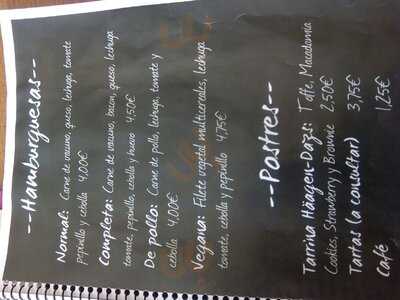 --Hamburguesas--
Normal: Carne de vacuno, queso, lechuga, tomate
pepinillo y cebolla 4,00€
Completa: Carne de vacuno, bacon, queso, lechuga
tomate, pepinillo, cebolla y huevo 4,50€
De pollo: Carne de pollo, lechuga, tomate y
cebolla 4,00€
Vegana: Filete vegetal multicereales, lechuga
tomate, cebolla y pepinillo 4,75€
--Postres--
Tarrina Häagen-Dazs: Toffe, Macadamia
Cookies, Strawberry y Brownie 2,50€
Tartas (a consultar) 3,75€
Café 1,25€